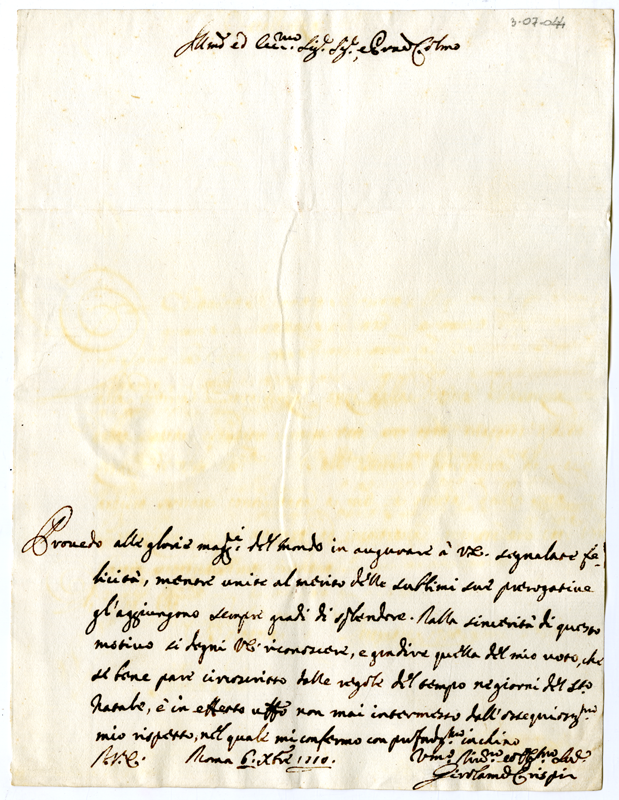 3-07-044
Ill.mo ed Ecc.mo Sig.r Sig.r, e Pron Col.mo
Provedo alle glorie magg.i del Mondo in augurare à V.E. segnalate fe-
licità, mentre unite al merito delle sublimi sue prerogative
gl'aggiungono sempre gradi di splendore. Dalla sincerità di questo
motivo si degni V.E. riconoscere, e gradire quella del mio voto, che
se bene pare circoscritto dalle regole del tempo ne giorni del S.to
Natale, è in effetto uff.o non mai intermesso dall'ossequiosiss.mo
mio rispetto, nel quale mi confermo con profondiss.mo inchino
Roma 6. Xbre 1110.
Girolamo Crispi